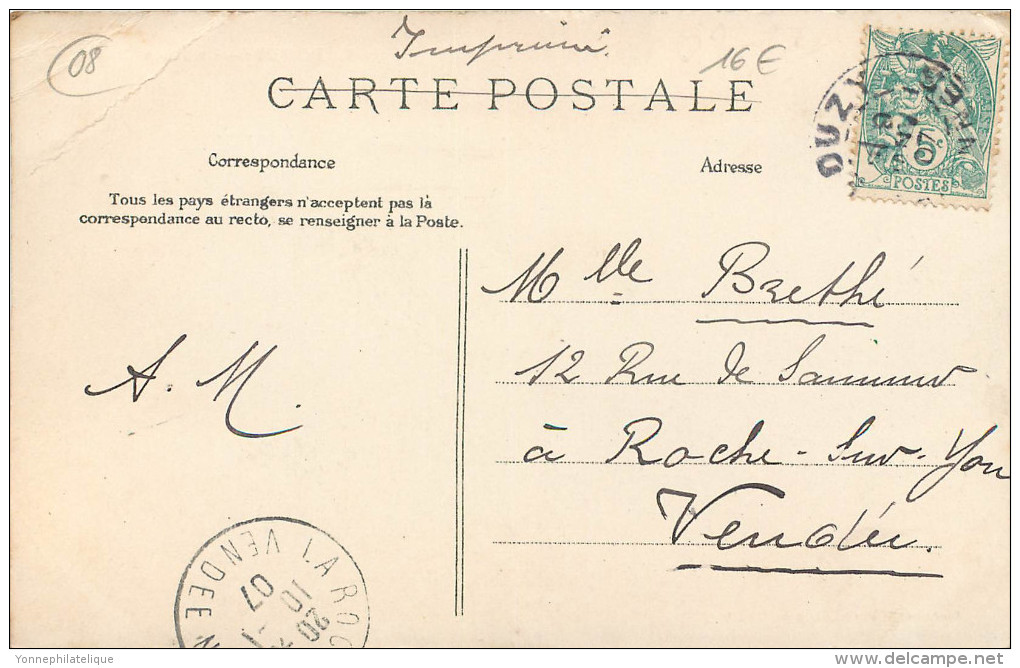 08
Imprimé
16 €
CARTE POSTALE
DUZY
5c
POSTES
Correspondance
Adresse
Tous les pays étrangers n'acceptent pas la
correspondance au recto, se renseigner à la Poste.
Mlle Brethé
12 Rue de Saumur
à Roche-Sur-Yon
Vendée.
A. M.
LA ROC
VENDEE
20
10
07
Yonnephilatelique
delcampe.net